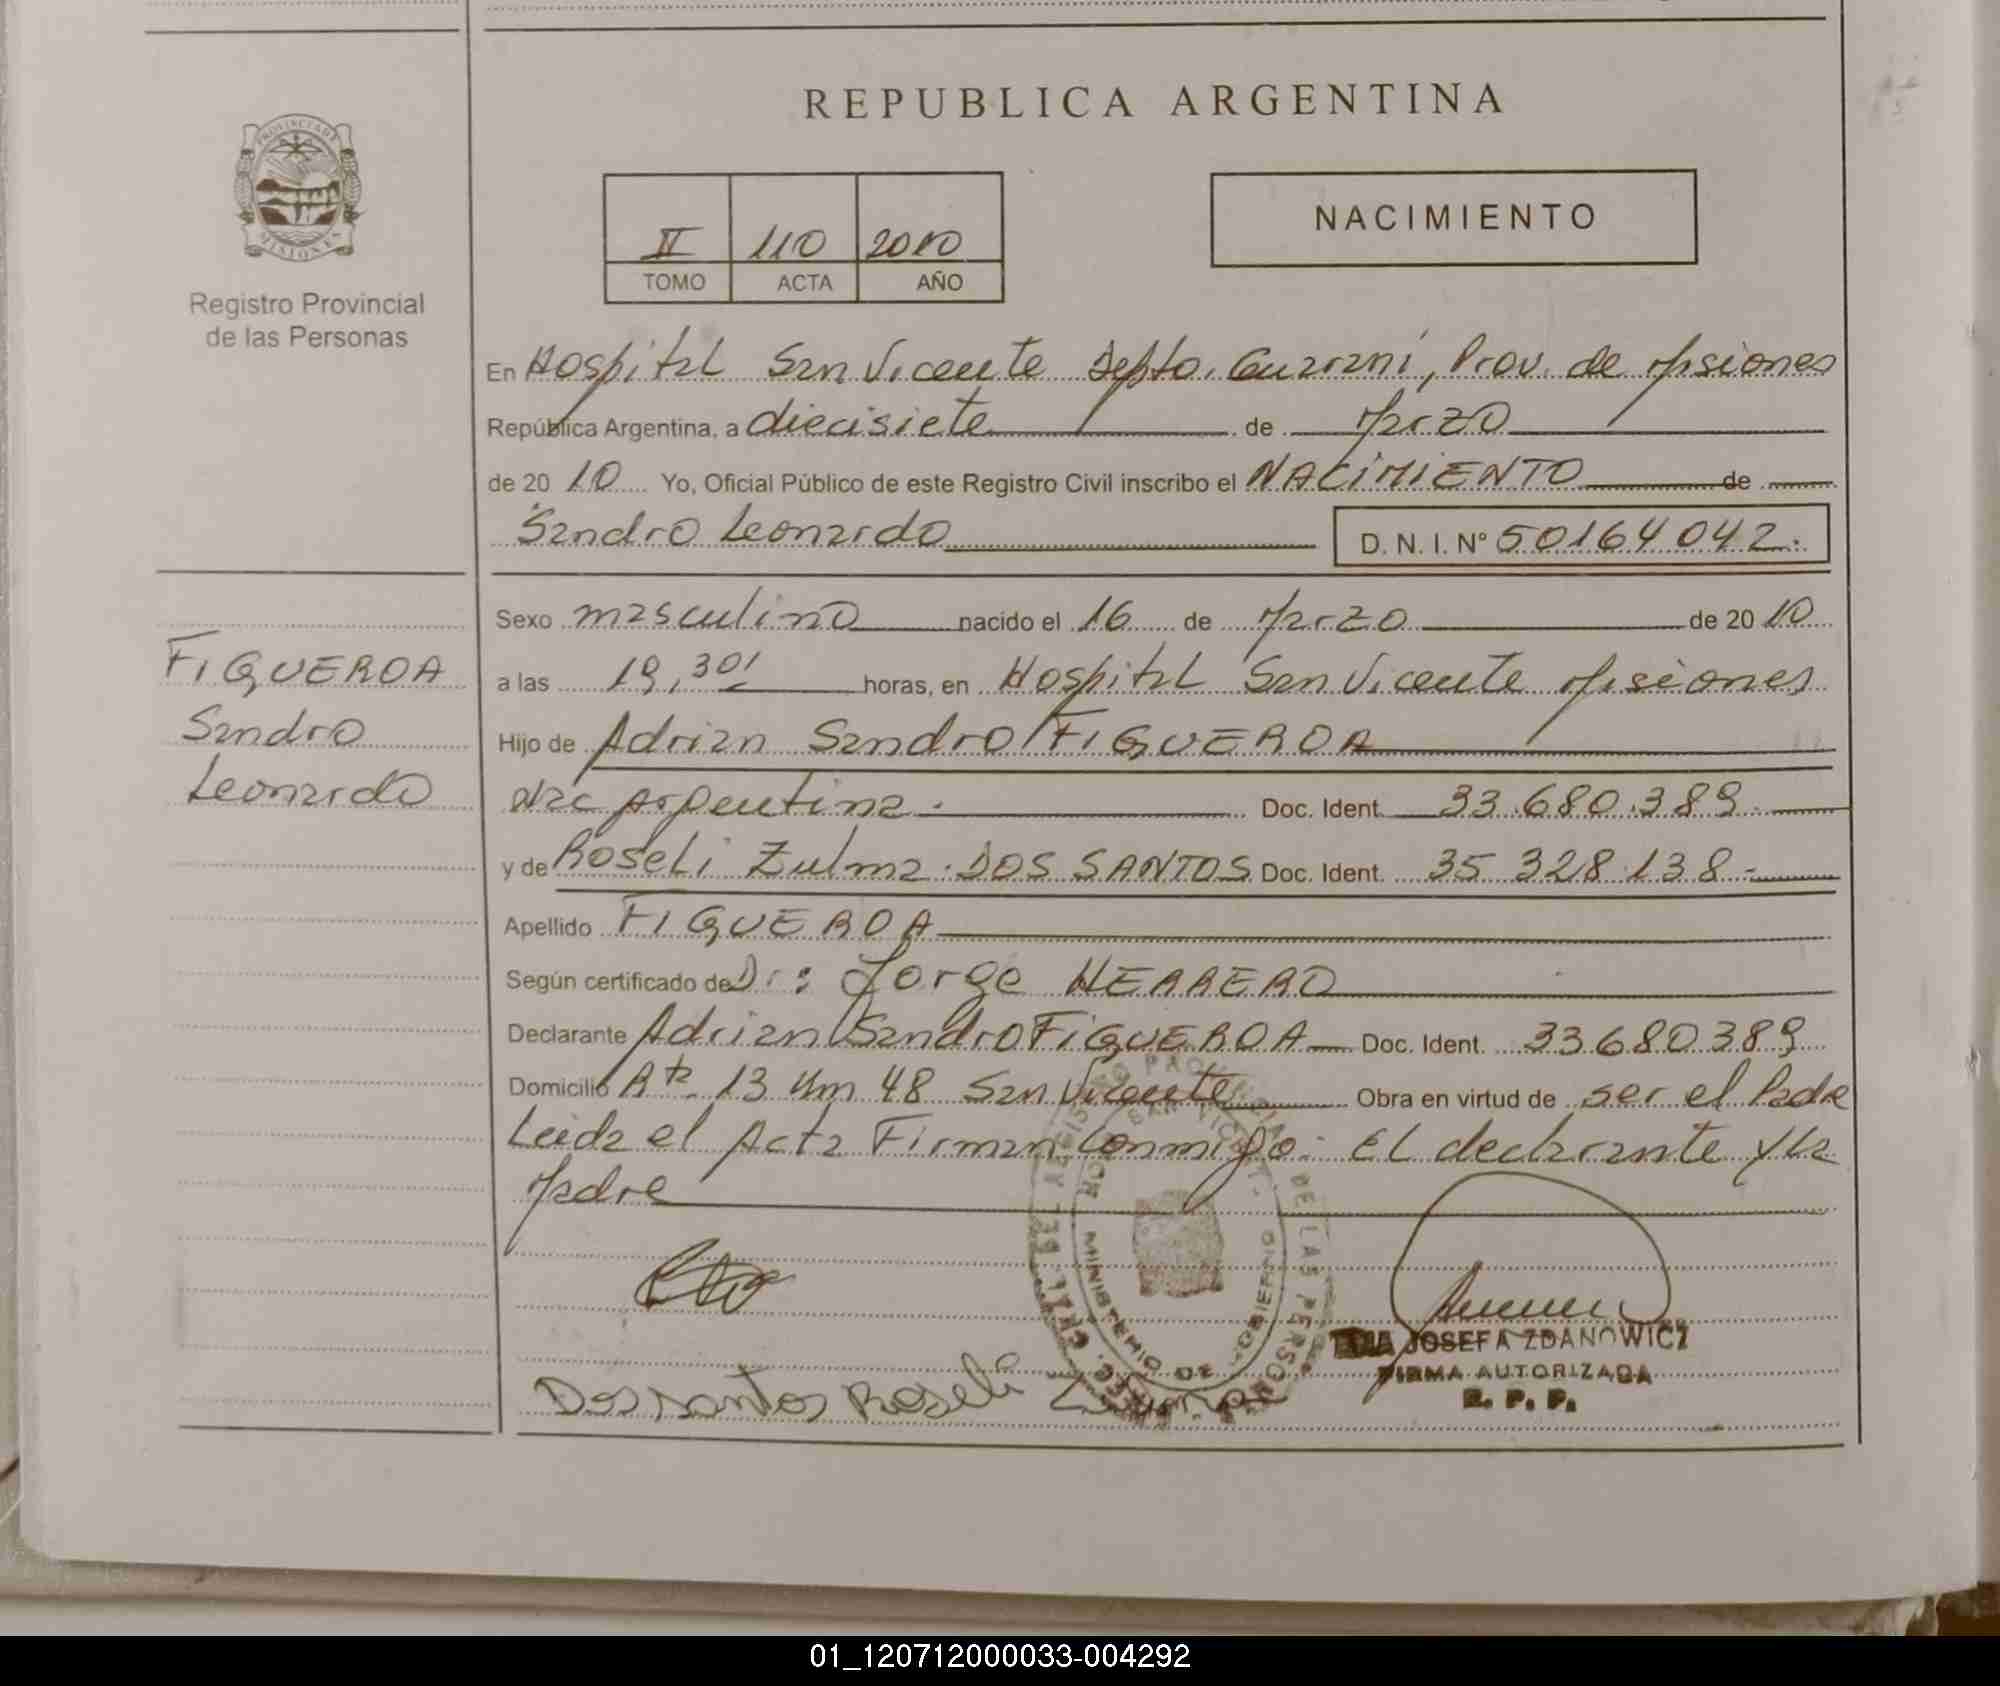 REPUBLICA ARGENTINA
PROVINCIA DE
MISIONES
Registro Provincial
de las Personas
II 110 2010
TOMO ACTA AÑO
NACIMIENTO
En Hospital San Vicente Depto. Guaraní, Prov. de Misiones
República Argentina, a diecisiete de Marzo
de 2010 Yo, Oficial Público de este Registro Civil inscribo el NACIMIENTO de
Sandro Leonardo D. N. I. Nº 50164042.
FIGUEROA
Sandro
Leonardo
Sexo masculino nacido el 16 de Marzo de 2010
a las 19,30' horas, en Hospital San Vicente Misiones
Hijo de Adrian Sandro FIGUEROA
Nac Argentina. Doc. Ident. 33.680.389.
y de Roseli Zulma DOS SANTOS Doc. Ident. 35 328.138.
Apellido FIGUEROA
Según certificado de Dr: Jorge HERRERO
Declarante Adrian Sandro FIGUEROA Doc. Ident. 33680389
Domicilio Rta 13 Km 48 San Vicente Obra en virtud de ser el Padre
Leida el Acta Firman Conmigo: El declarante y la
Madre
MINISTERIO DE GOBIERNO
DE LAS PERSONAS
JOSEFA ZDANOWICZ
FIRMA AUTORIZADA
R. P. P.
Dos santos Roseli Zulma
01_120712000033-004292